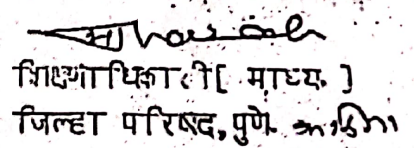 शिक्षणाधिकारी [ माध्य. ]
जिल्हा परिषद, पुणे.